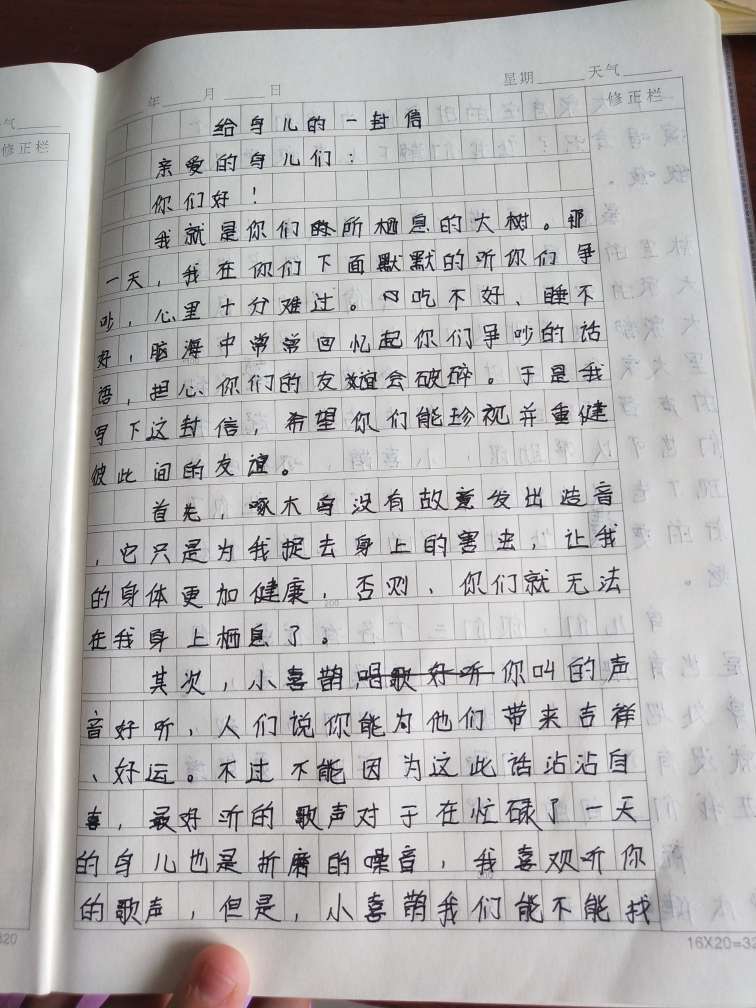 年 月 日 星期 天气
修正栏
气
修正栏
给鸟儿的一封信
亲爱的鸟儿们：
你们好！
我就是你们所栖息的大树。那
一天，我在你们下面默默的听你们争
吵，心里十分难过。吃不好、睡不
好，脑海中常常回忆起你们争吵的话
语，担心你们的友谊会破碎。于是我
写下这封信，希望你们能珍视并重健
彼此间的友谊。
首先，啄木鸟没有故意发出造音
，它只是为我捉去身上的害虫，让我
的身体更加健康，否则，你们就无法
200
在我身上栖息了。
其次，小喜鹊唱歌好听你叫的声
音好听，人们说你能为他们带来吉祥
、好运。不过不能因为这些话沾沾自
喜，最好听的歌声对于在忙碌了一天
的鸟儿也是折磨的噪音，我喜欢听你
的歌声，但是，小喜鹊我们能不能找
320
16X20=32